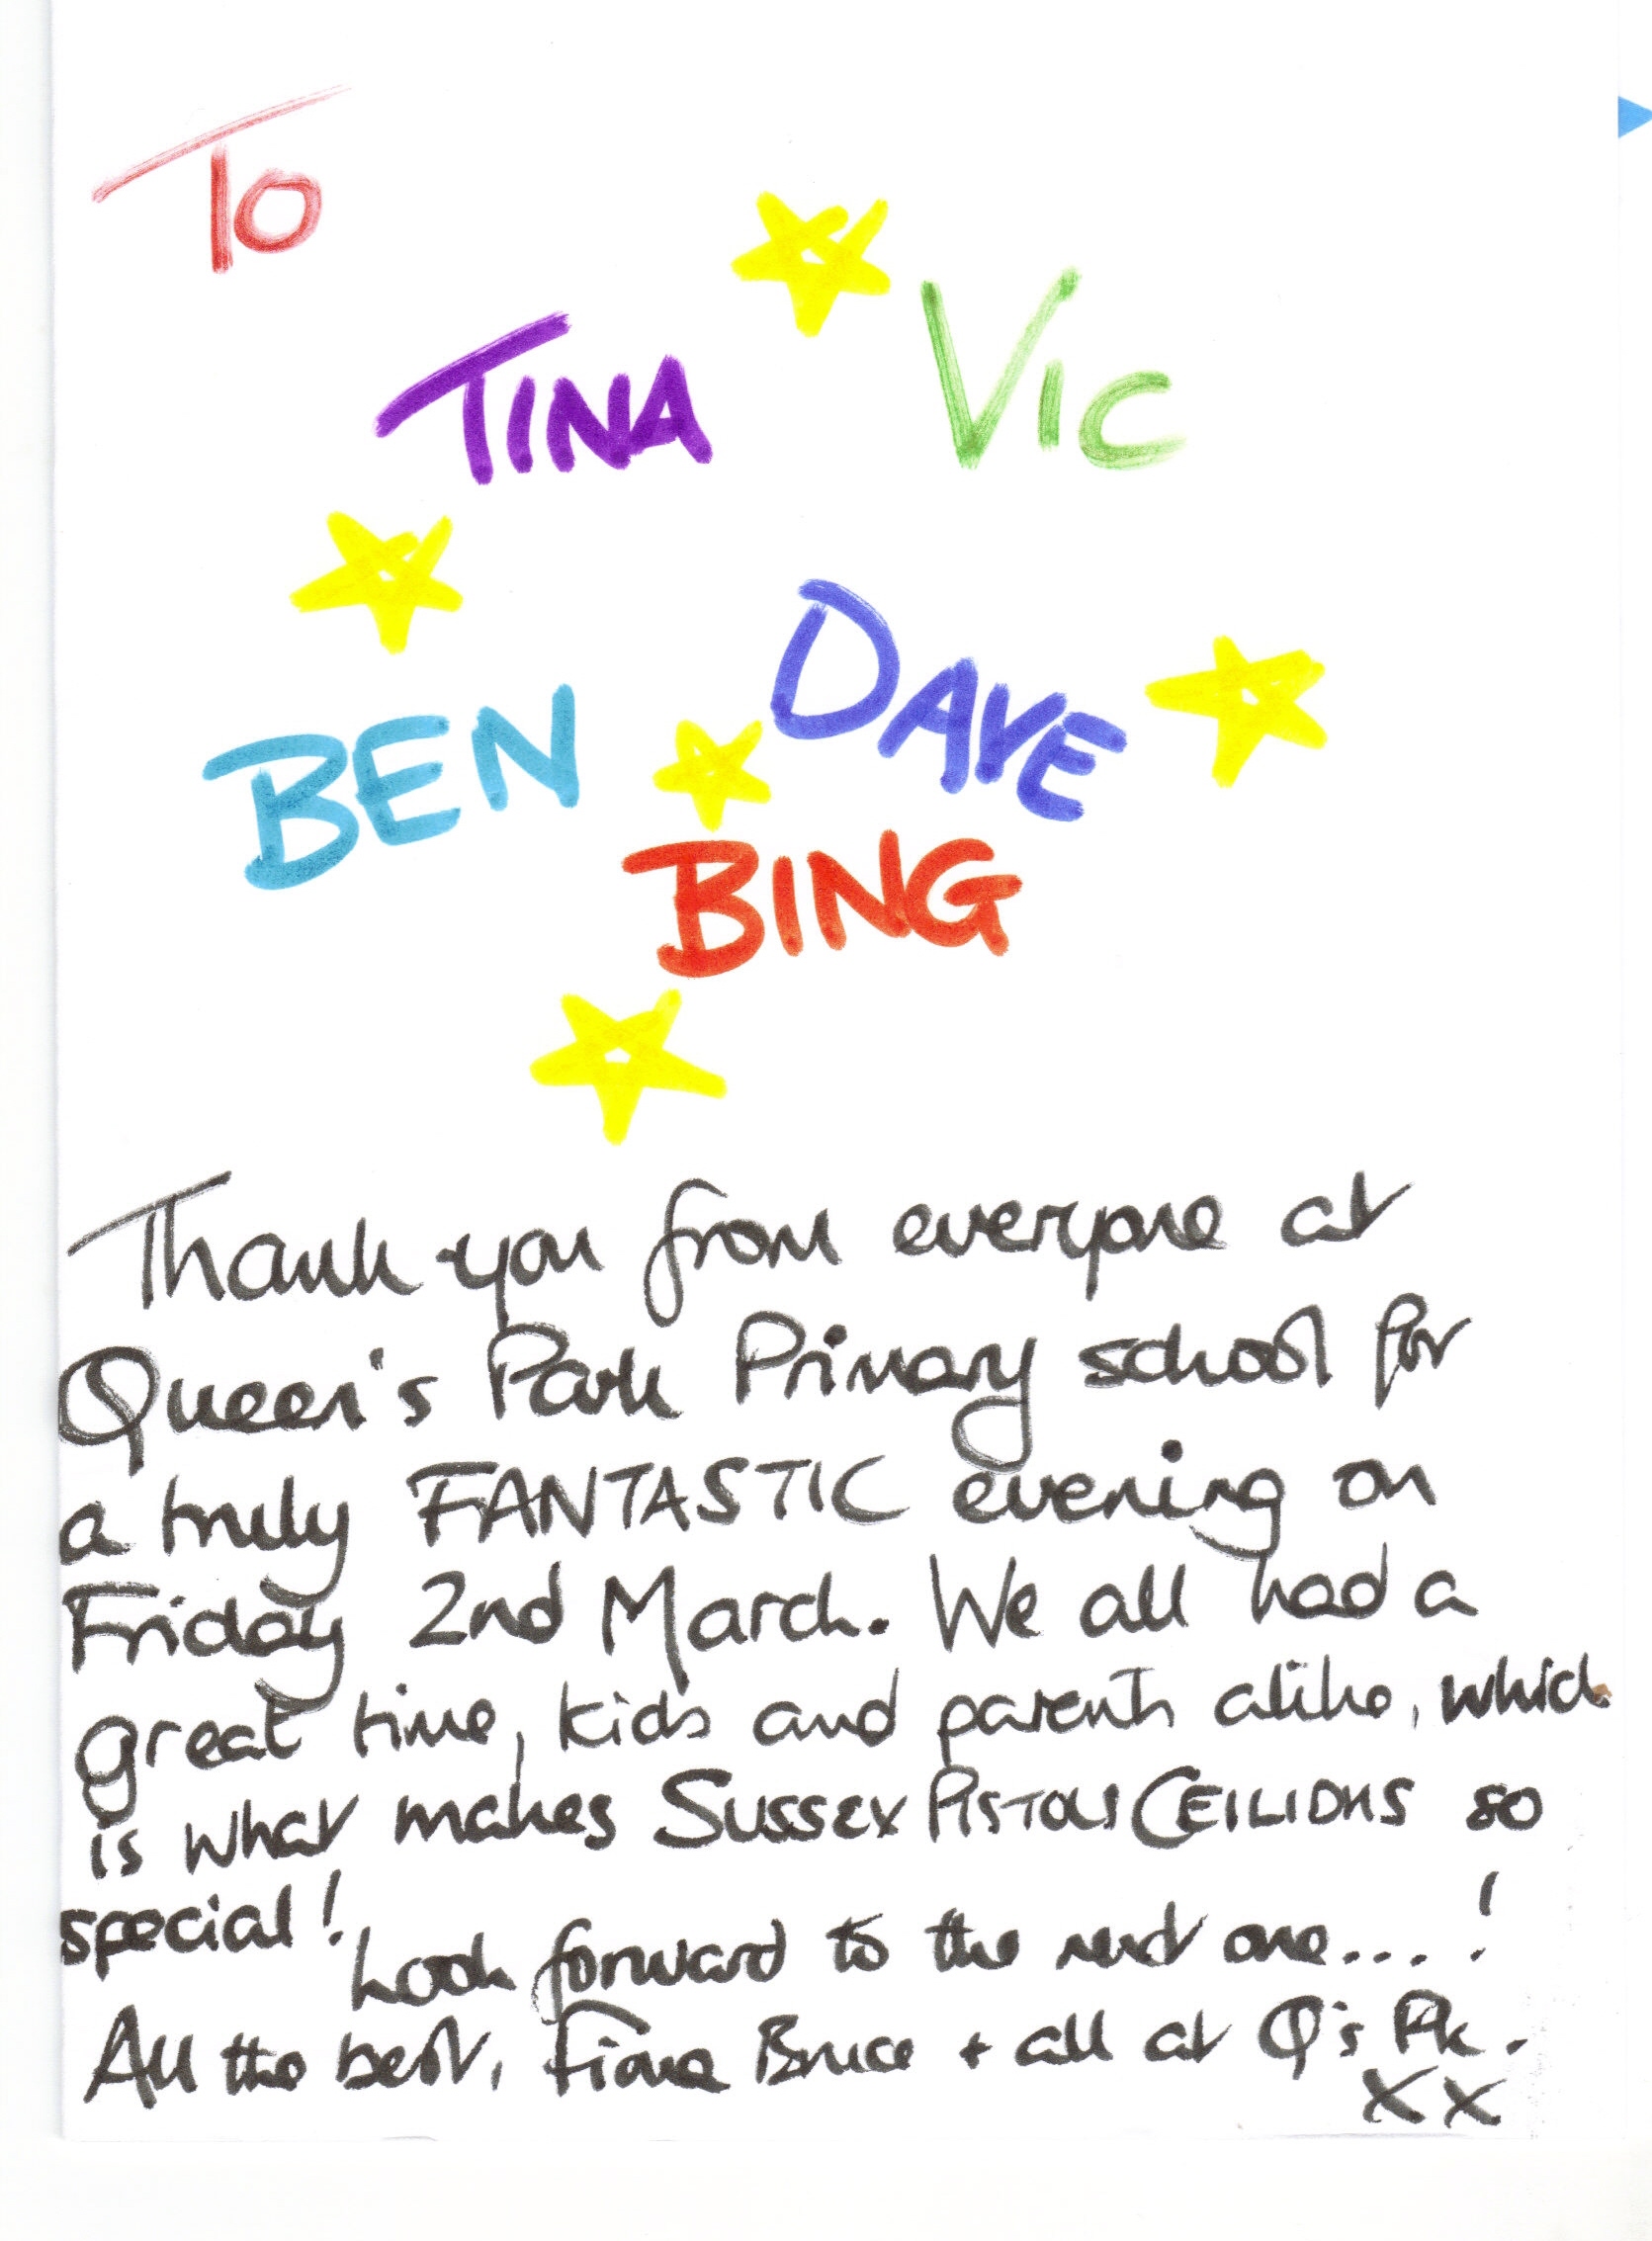 To
TINA VIC
BEN DAVE
BING
Thank you from everyone at
Queen's Park Primary school for
a truly FANTASTIC evening on
Friday 2nd March. We all had a
great time, kids and parents alike, which
is what makes SUSSEX PISTOLS CEILIDHS so
special!
Look forward to the next one....!
All the best, Fiona Bruce + all at Q's Pk.
XX